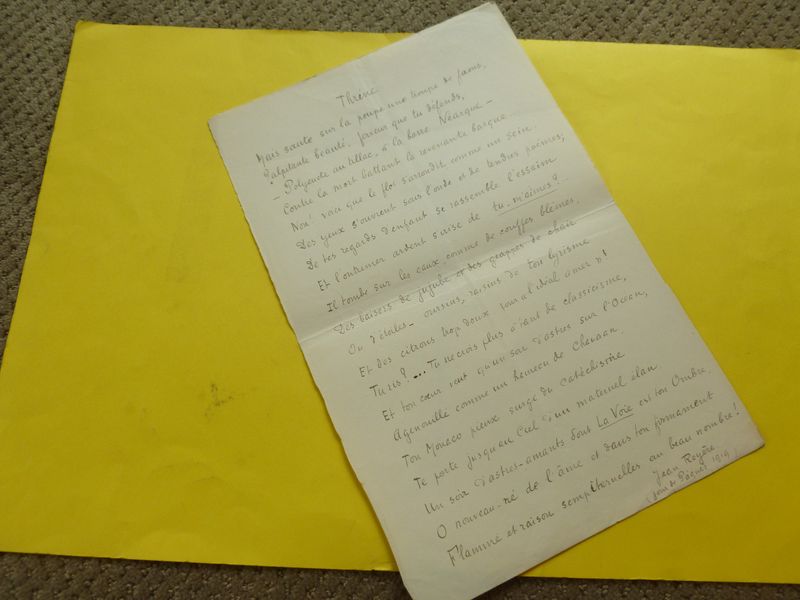 Thrène
Mais saute sur la poupe une troupe de faons,
Palpitante beauté, faveur que tu défends,
— Polyeucte au tillac, à la barre Néarque —
Contre la mort battant la revenante barque.
Non! vois que le flot s'arrondit comme un sein.
Des yeux s'ouvrent sous l'onde et de tendres poèmes;
De tes regards d'enfant se rassemble l'essaim
Et l'outremer ardent s'irise de tu m'aimes?
Il tombe sur les eaux comme de touffes blêmes,
Des baisers de jujube et des grappes de chair
Ou d'étoiles — oursins, raisins de ton lyrisme
Et des citrons trop doux pour l'idéal amer et
Tu ris? .... Tu ne crois plus à tant de classicisme,
Et ton cœur veut qu'un soir d'astres sur l'Océan,
Agenouillé comme un hameau de
Ton Monaco pieux surgi du catéchisme
Te porte jusqu'au Ciel d'un maternel élan
Un soir d'astres-amants dont La Voie est ton Ombre.
O nouveau-né de l'âme et dans ton firmament
Flamme et raison sempiternelles au beau nombre!
Jean Royère
(jour de Pâques 1919)